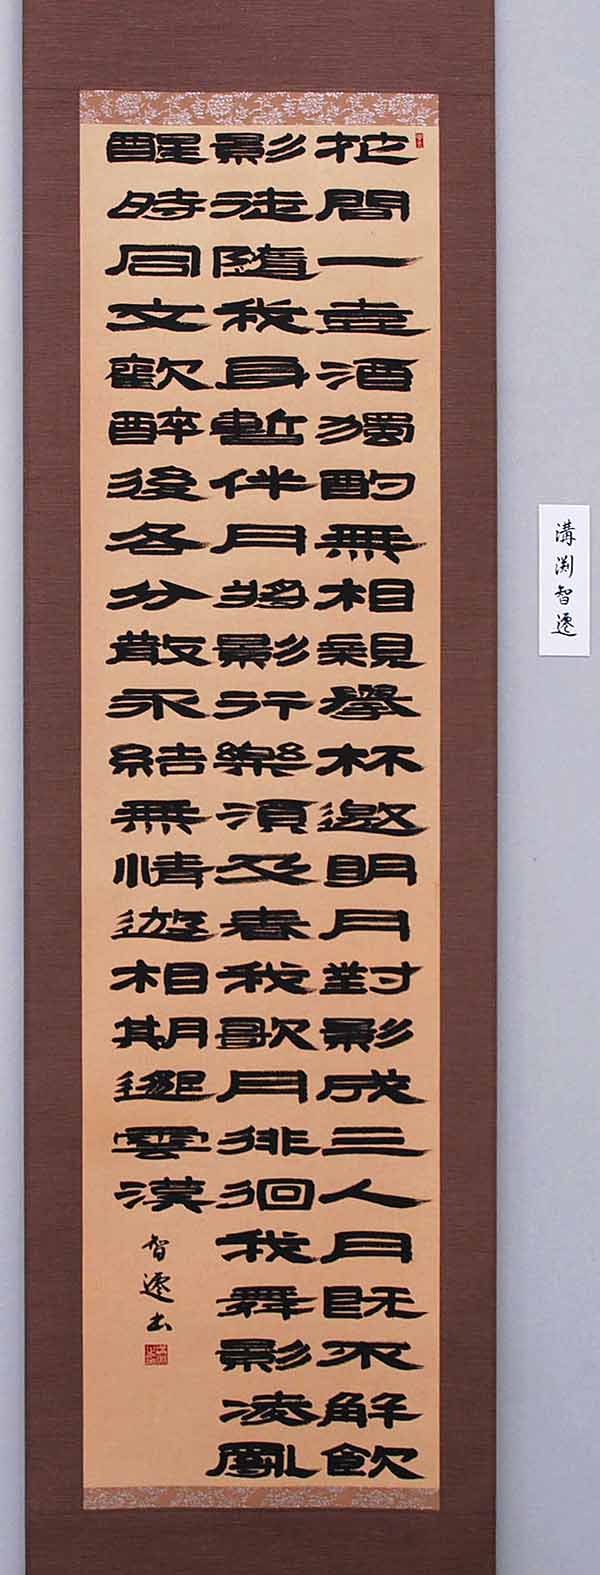 花間一壺酒獨酌無相親舉杯邀明月對影成三人月既不解飲
影徒隨我身暫伴月將影行樂須及春我歌月徘徊我舞影凌亂
醒時同交歡醉後各分散永結無情遊相期邈雲漢
智遷書
溝渕智遷